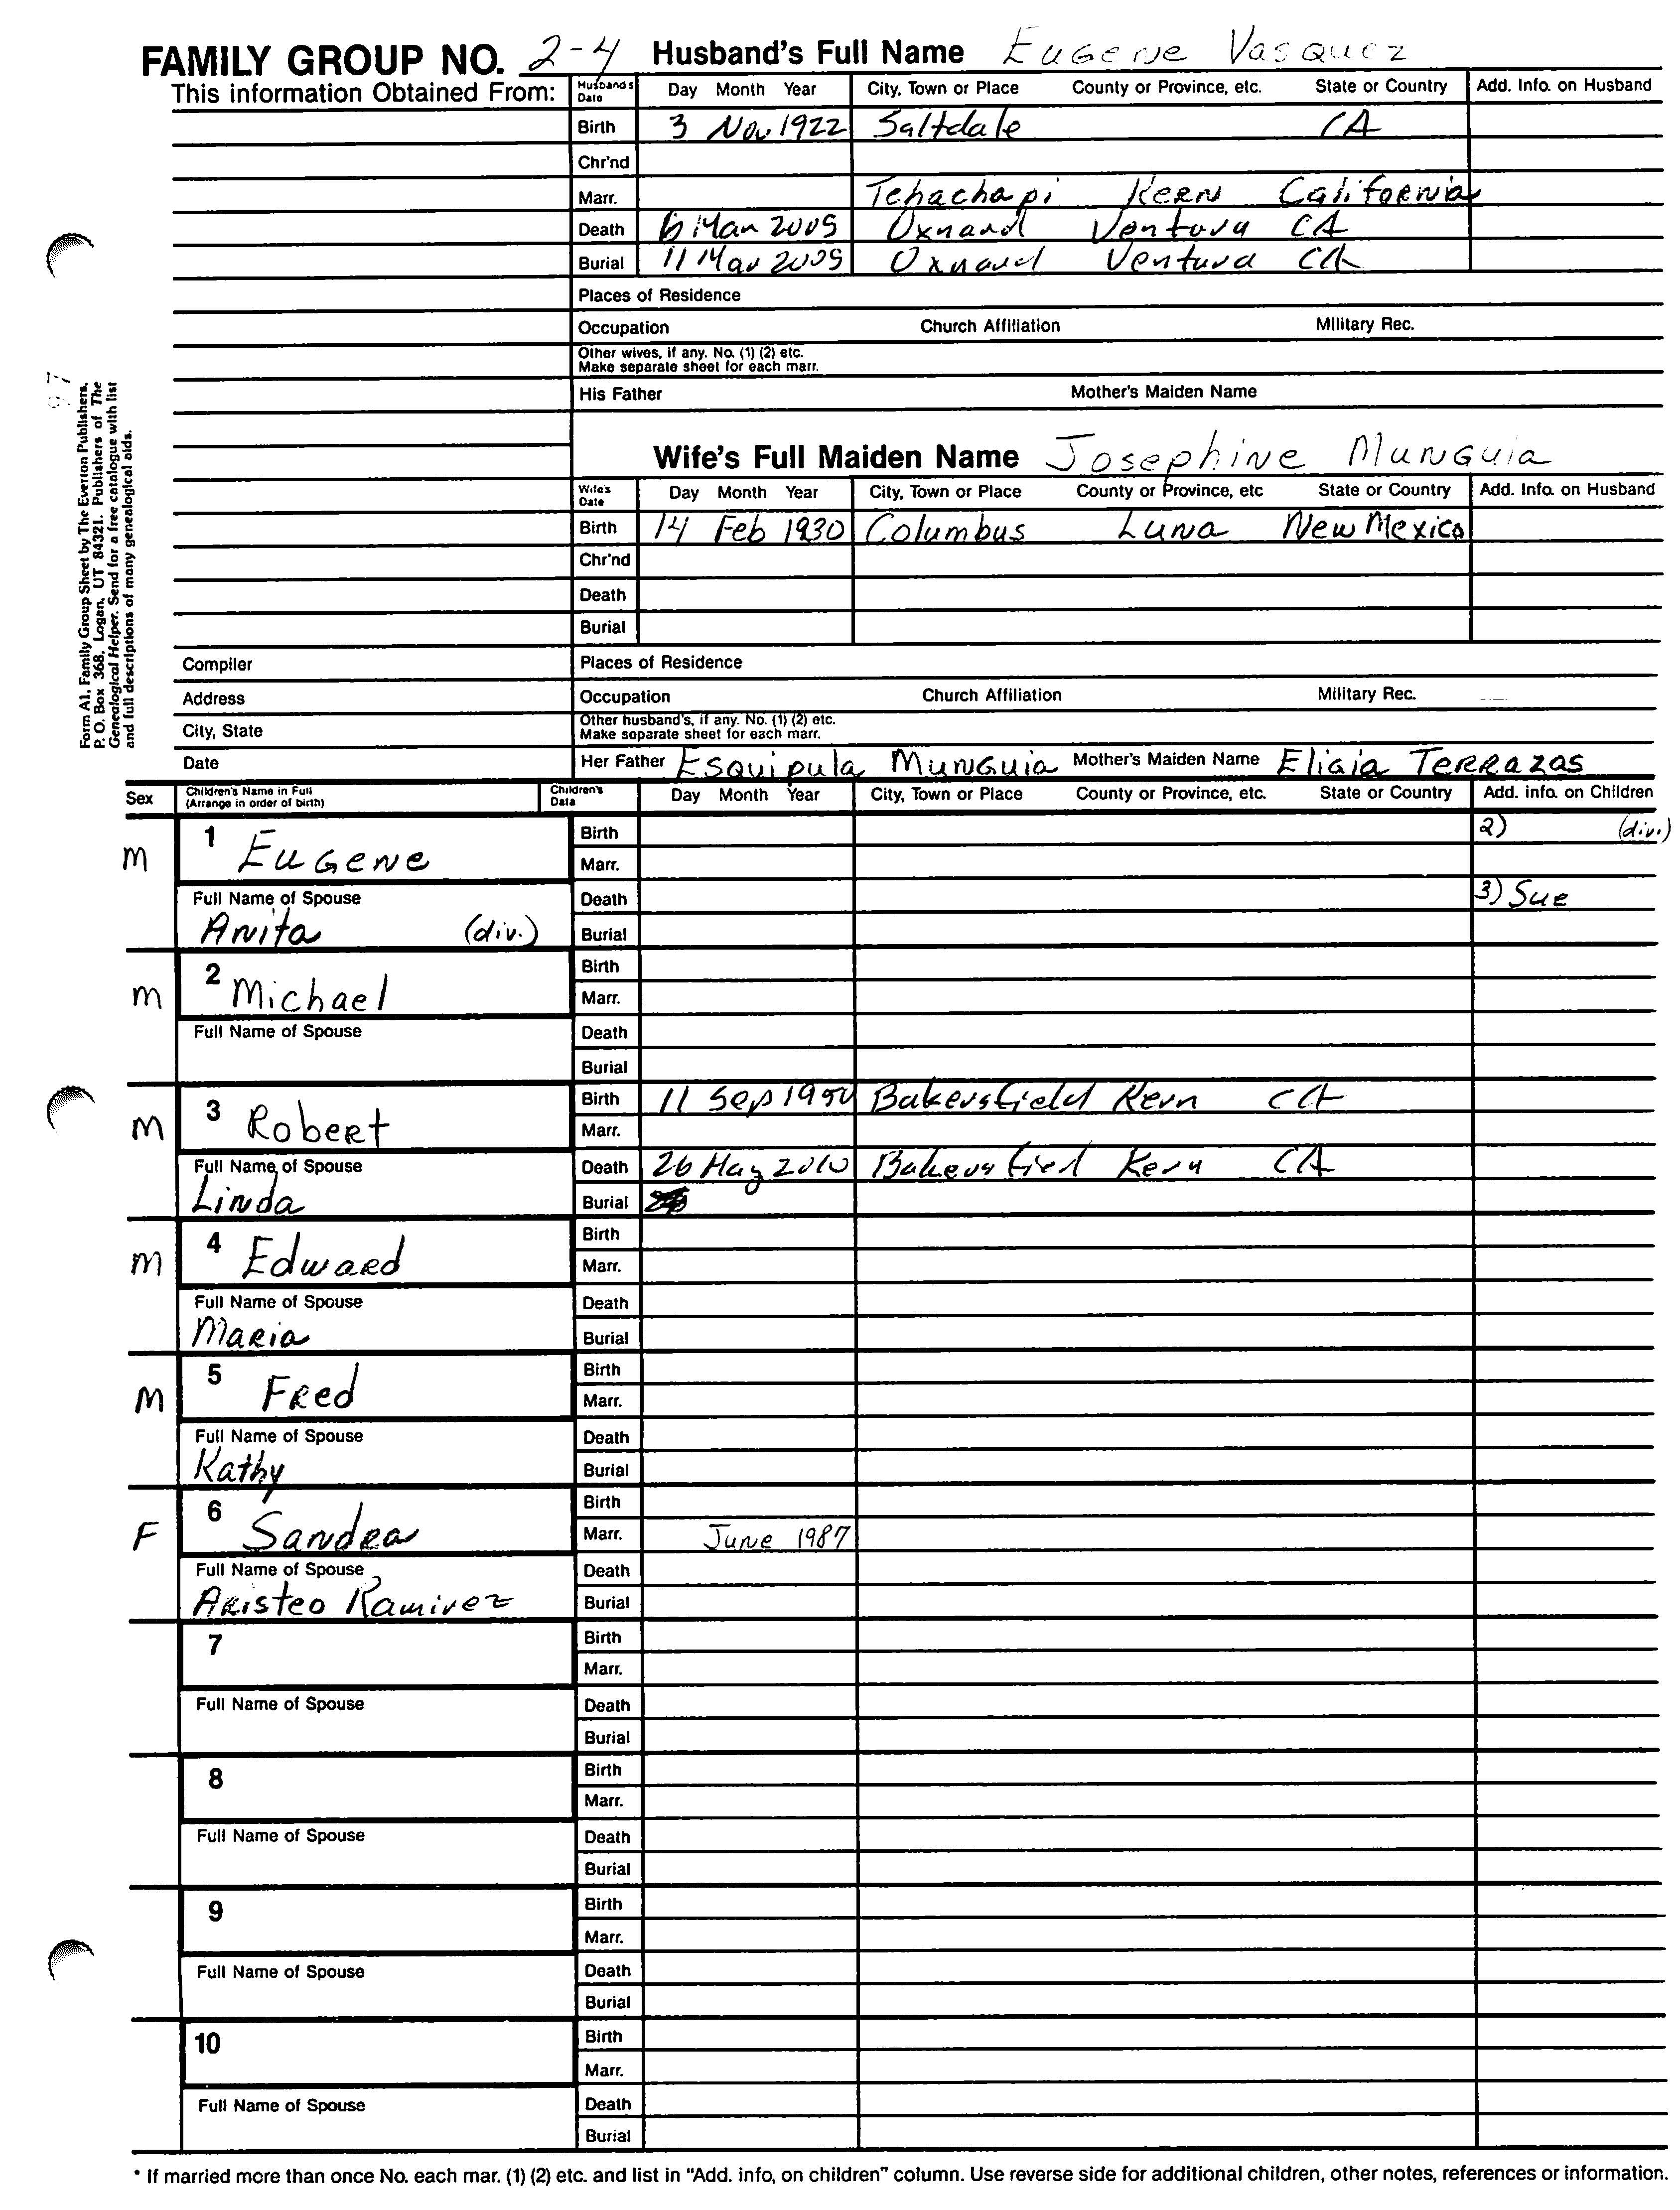 FAMILY GROUP NO. 2-4 Husband's Full Name Eugene Vasquez
This information Obtained From: Husband's Data Day Month Year City, Town or Place County or Province, etc. State or Country Add. Info. on Husband
Birth 3 Nov 1922 Saltdale CA
Chr'nd
Marr. Tehachapi Kern California
Death 6 Mar 2005 Oxnard Ventura CA
Burial 11 Mar 2005 Oxnard Ventura CA
Places of Residence
Occupation Church Affiliation Military Rec.
Other wives, if any. No. (1) (2) etc.
Make separate sheet for each marr.
His Father Mother's Maiden Name
97
Form A1, Family Group Sheet by The Everton Publishers,
P.O. Box 368, Logan, UT 84321. Publishers of The
Genealogical Helper. Send for a free catalogue with list
and full descriptions of many genealogical aids.
Wife's Full Maiden Name Josephine Munguia
Wife's Data Day Month Year City, Town or Place County or Province, etc State or Country Add. Info. on Husband
Birth 14 Feb 1930 Columbus Luna New Mexico
Chr'nd
Death
Burial
Compiler Places of Residence
Address Occupation Church Affiliation Military Rec.
City, State Other husband's, if any. No. (1) (2) etc.
Make separate sheet for each marr.
Date Her Father Esquipula Munguia Mother's Maiden Name Terrazas
Sex Children's Name in Full (Arrange in order of birth) Children's Data Day Month Year City, Town or Place County or Province, etc. State or Country Add. info. on Children
M 1 Eugene Birth 2) (div.)
Marr.
Full Name of Spouse Death 3) Sue
Anita (div.) Burial
M 2 Michael Birth
Marr.
Full Name of Spouse Death
Burial
M 3 Robert Birth 11 Sep 1950 Bakersfield Kern CA
Marr.
Full Name of Spouse Death 26 May 2010 Bakersfield Kern CA
Linda Burial
M 4 Edward Birth
Marr.
Full Name of Spouse Death
Maria Burial
M 5 Fred Birth
Marr.
Full Name of Spouse Death
Kathy Burial
F 6 Sandra Birth
Marr. June 1987
Full Name of Spouse Death
Aristeo Ramirez Burial
7 Birth
Marr.
Full Name of Spouse Death
Burial
8 Birth
Marr.
Full Name of Spouse Death
Burial
9 Birth
Marr.
Full Name of Spouse Death
Burial
10 Birth
Marr.
Full Name of Spouse Death
Burial
* If married more than once No. each mar. (1) (2) etc. and list in "Add. info, on children" column. Use reverse side for additional children, other notes, references or information.